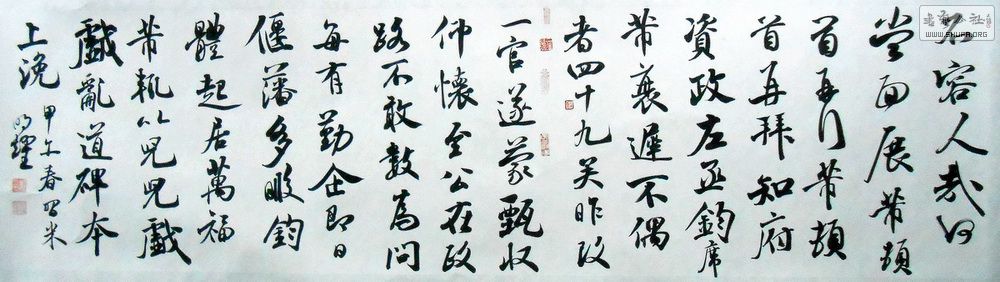 容人哉
面展芾頓
首再行芾頓
首再拜知府
資政左丞鈞席
芾衰遲不偶
者四十九矣昨改
一官遂蒙甄收
仲懷至公在政
路不敢數為問
每有勤企即日
偃藩多暇鈞
體起居萬福
芾輒以兒兒戲
戲亂道碑本
上浼
甲午春習米
书法公社
WWW.SHUFA.ORG